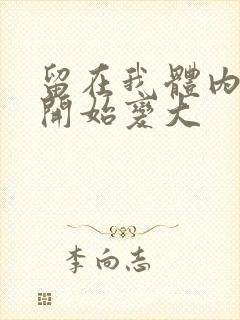 留在我體內
開始變大
李向志